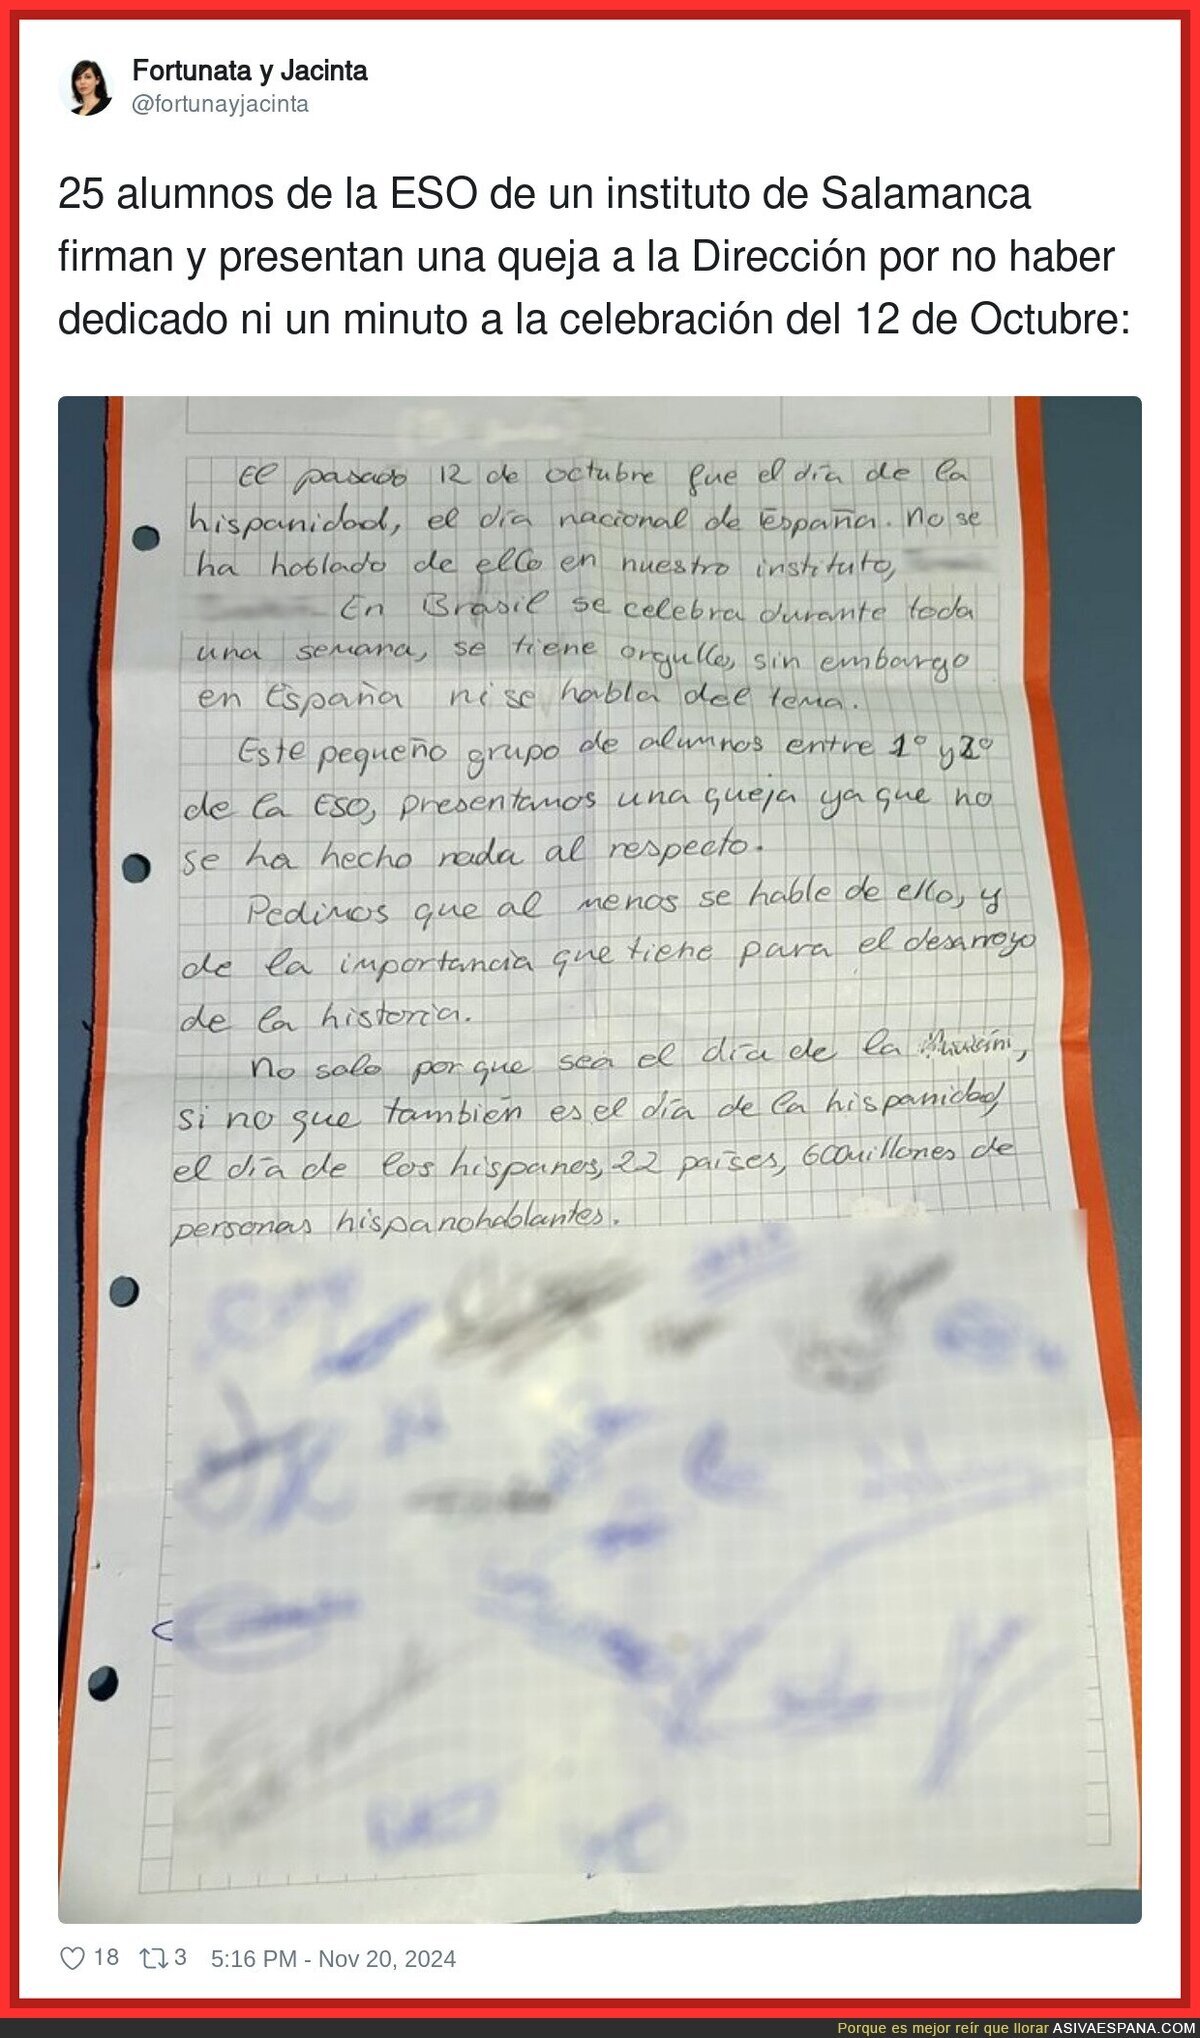 Fortunata y Jacinta
@fortunayjacinta
25 alumnos de la ESO de un instituto de Salamanca
firman y presentan una queja a la Dirección por no haber
dedicado ni un minuto a la celebración del 12 de Octubre:
El pasado 12 de octubre fue el día de la
hispanidad, el día nacional de España. No se
ha hablado de ello en nuestro instituto,
En Brasil se celebra durante toda
una semana, se tiene orgullo, sin embargo
en España ni se habla del tema.
Este pequeño grupo de alumnos entre 1º y 2º
de la ESO, presentamos una queja ya que no
se ha hecho nada al respecto.
Pedimos que al menos se hable de ello, y
de la importancia que tiene para el desarroyo
de la historia.
No solo porque sea el día de la
si no que también es el día de la hispanidad,
el día de los hispanos, 22 países, 600millones de
personas hispanohablantes.
18 3 5:16 PM - Nov 20, 2024
Porque es mejor reír que llorar ASIVAESPANA.COM